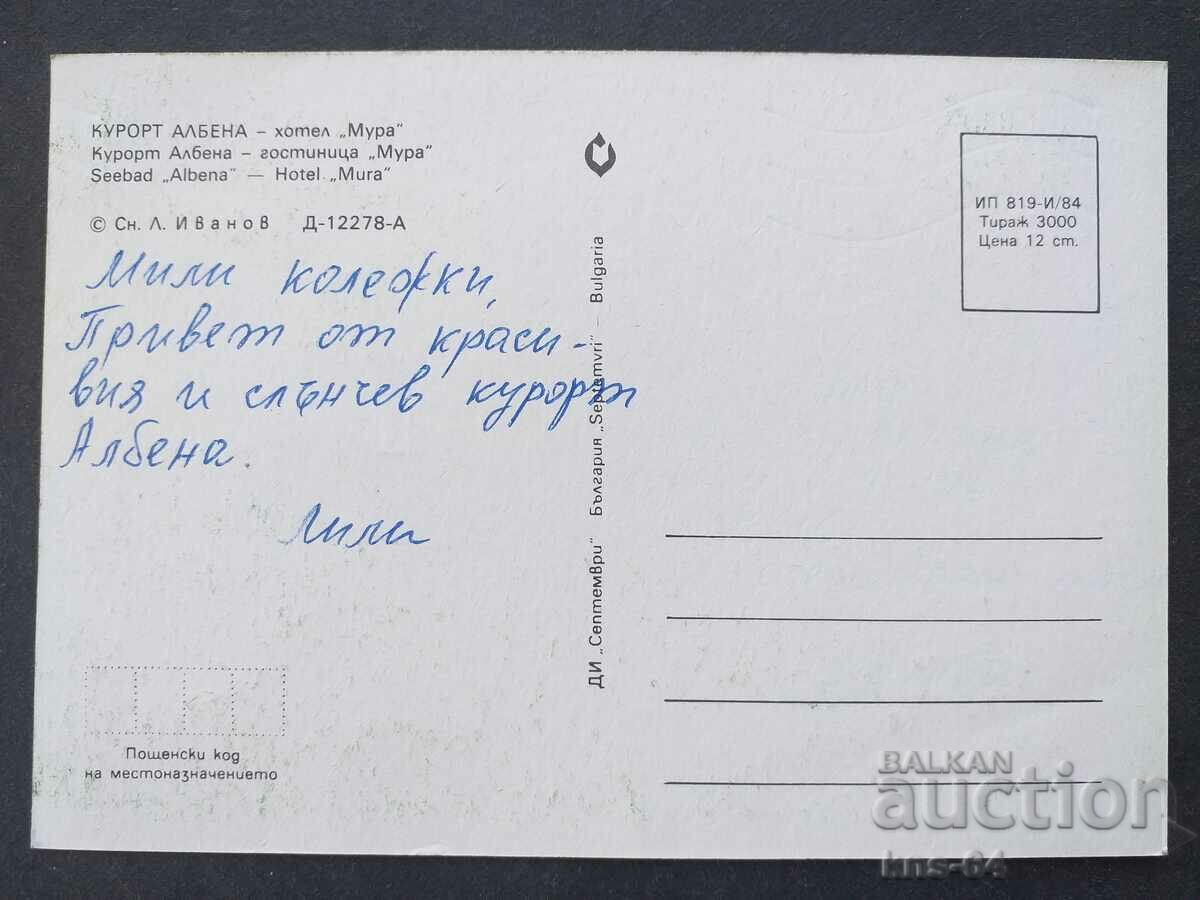 КУРОРТ АЛБЕНА – хотел „Мура“
Курорт Албена – гостиница „Мура“
Seebad „Albena“ — Hotel „Mura“
© Сн. Л. Иванов Д-12278-А
Мили колежки,
Привет от краси-
вия и слънчев курорт
Албена.
Лили
Пощенски код
на местоназначението
ДИ „Септември“ България „Septemvri“ — Bulgaria
ИП 819-И/84
Тираж 3000
Цена 12 ст.
BALKAN
auction
kns-64